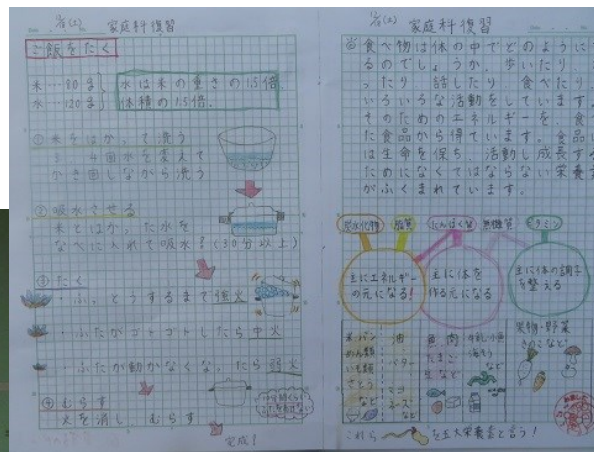 家庭科復習
ご飯をたく
米…80g
水…120g
水は米の重さの1.5倍.
体積の1.5倍.
①米をはかって洗う
3〜4回水を変えて
かき回しながら洗う
②吸水させる
米とはかった水を
なべに入れて吸水!(30分以上)
③たく
・ふっとうするまで強火
・ふたがゴトゴトしたら中火
・ふたが動かなくなったら弱火
④むらす
火を消し むらす
完成!
家庭科復習
食べ物は体の中でどのように
るのでしょうか。歩いたり
ったり、話したり、食べたり、
いろいろな活動をしています。
そのためのエネルギーを、食べ
た食品から得ています。食品
は生命を保ち、活動し成長する
ためになくてはならない栄養
がふくまれています。
炭水化物 脂質 たんぱく質 無機質 ビタミン
主にエネルギーの元になる!
主に体を作る元になる
主に体の調子を整える
米 パン
めん類
いも類
さとう
など
油
バター
マヨネーズ
など
魚 肉
たまご
豆など
牛乳 小魚
海そう
など
果物・野菜
きのこなど
これら を五大栄養素と言う!